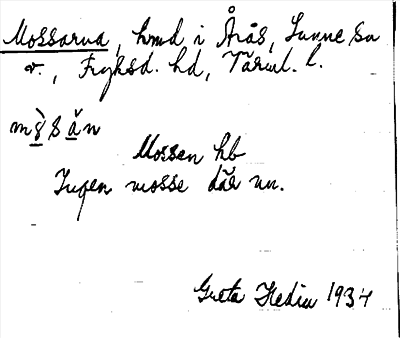 Mossarna, hmd i Årås, Sunne sn
v., Fryksd. hd, Värml. l.
mò̲s å̲n
Mossen hb
Ingen mosse där nu.
Greta Hedin 1934